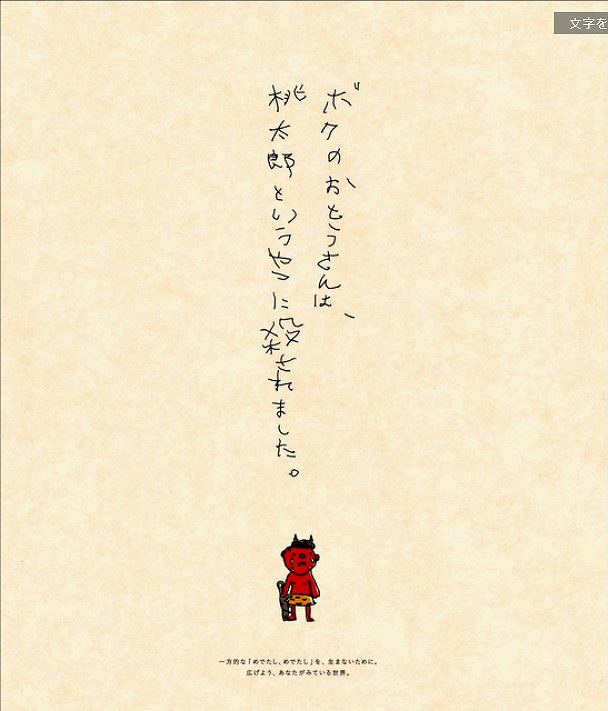 ボクのおとうさんは、
桃太郎というやつに殺されました。
一方的な「めでたし、めでたし」を、生まないために。
広げよう、あなたがみている世界。
文字を